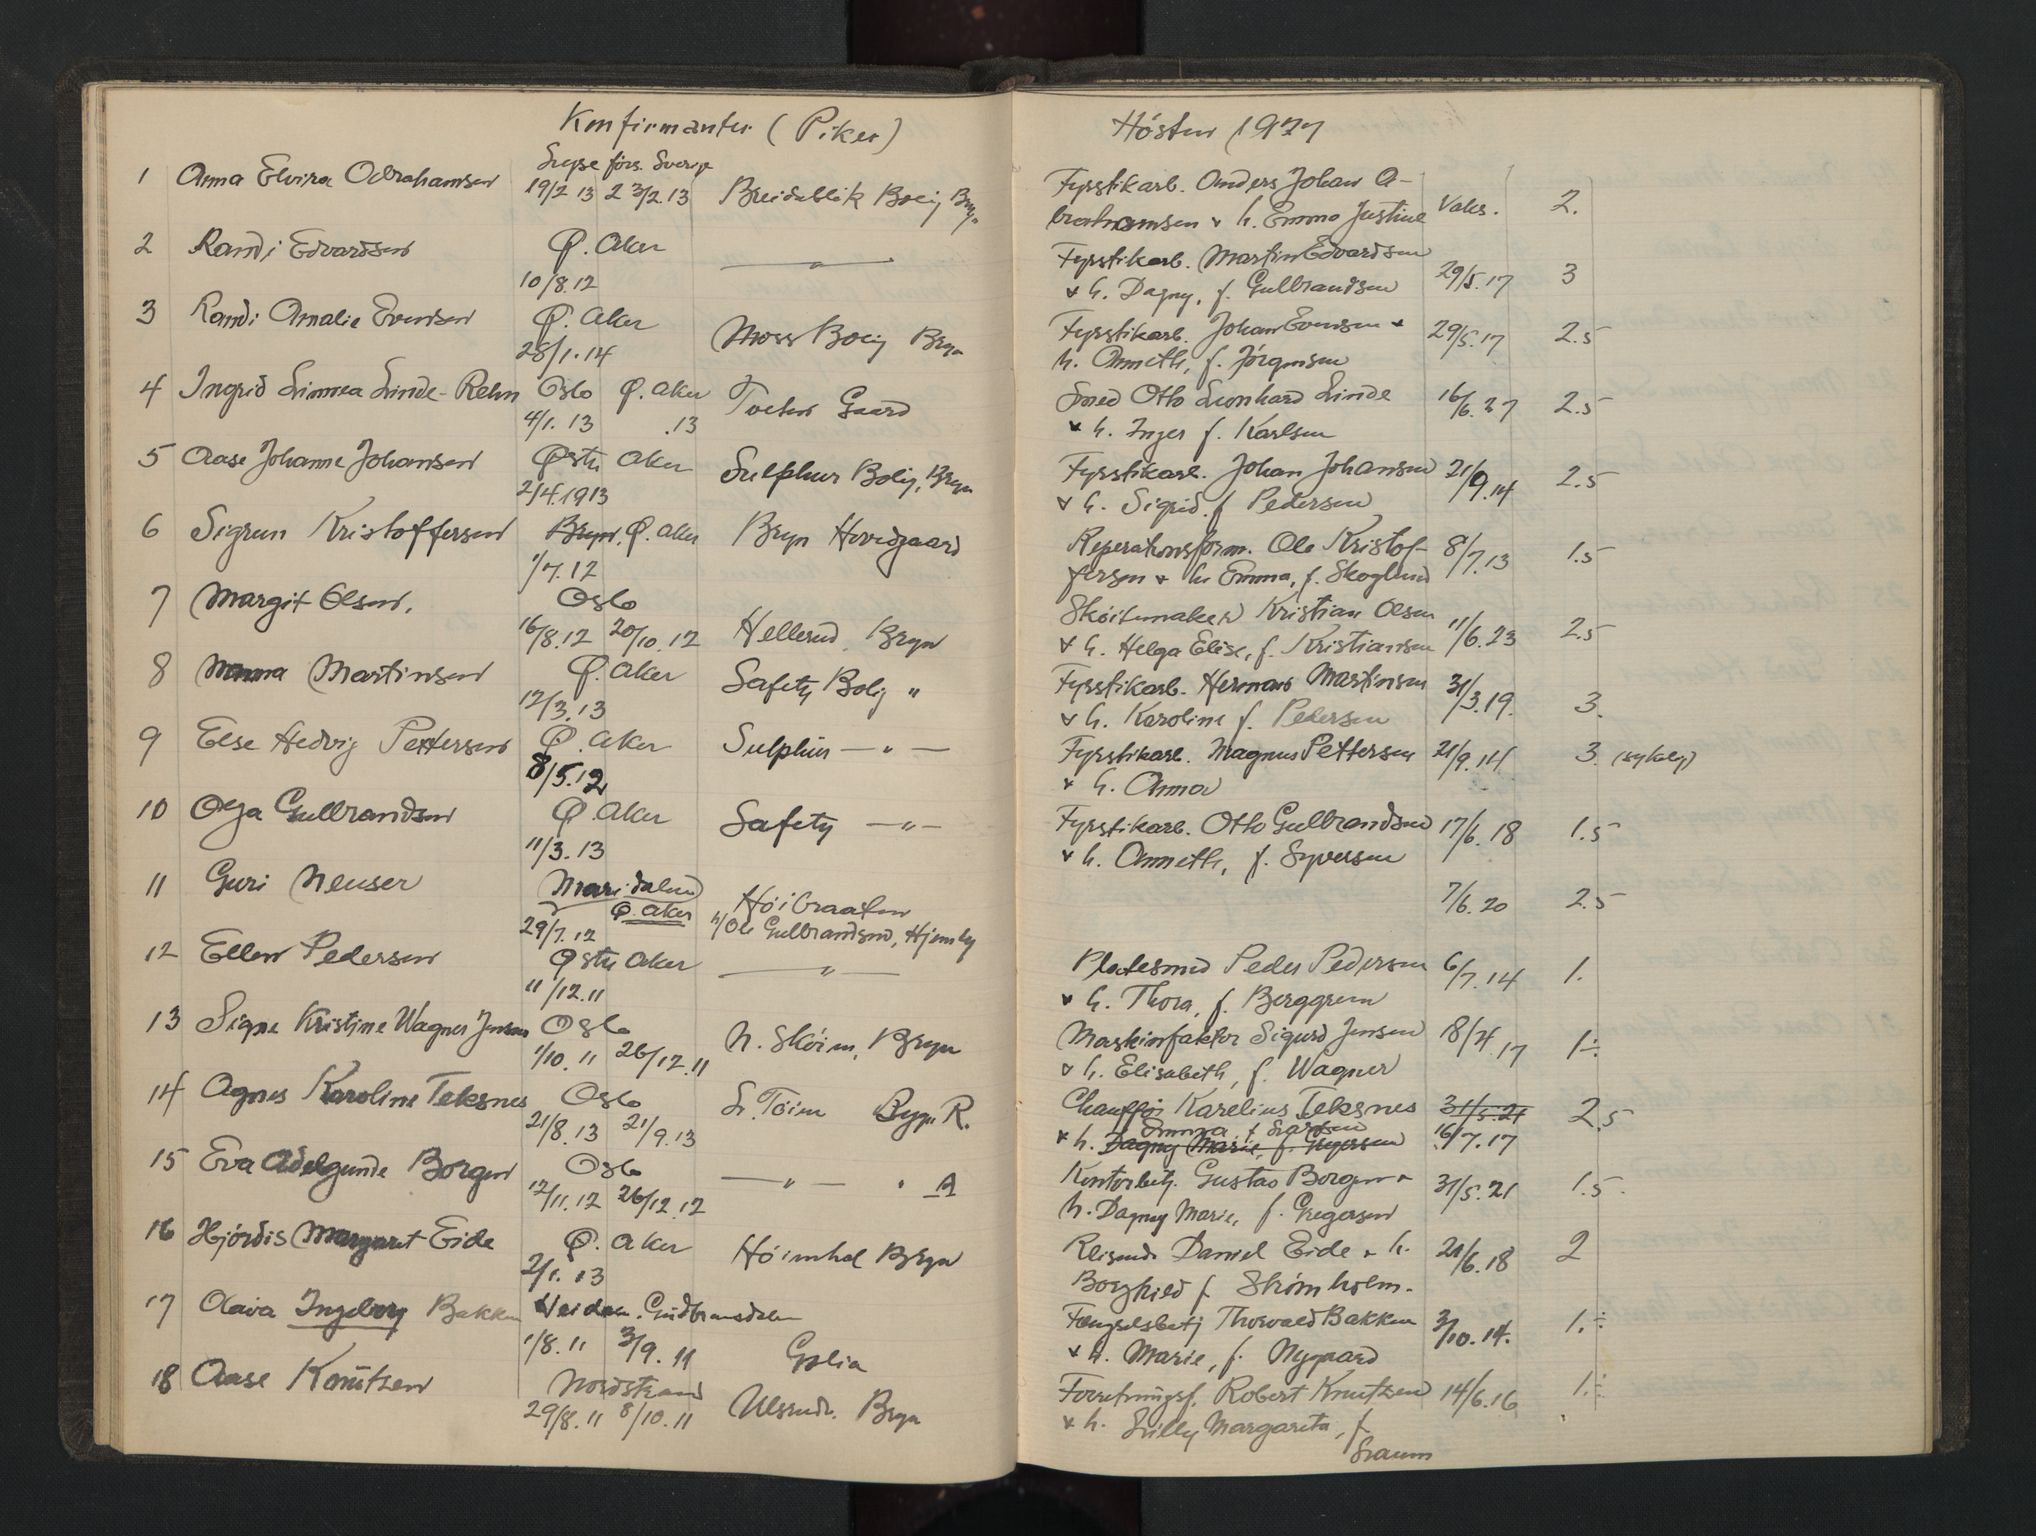 Konfirmanter (Piker)
Høsten 1927
1 Anna Elvira Abrahamsen
förs. Sverige
19/2 13 23/2.13
Breidablik Bolig Bryn
Fyrstikarb. Anders Johan A-
brahamsen & h. Emma Justine
Vaks. 2.
2 Randi Edvardsen
Ø. Aker
10/8.12
— " —
Fyrstikarb. Martin Edvardsen
& h. Dagny, f. Gulbrandsen
29/5.17 3
3 Randi Amalie Evensen
Ø. Aker
28/1.14
Moss Bolig Bryn
Fyrstikarb. Johan Evensen &
h. Anneth, f. Jörgensen
29/5.17 2.5
4 Ingrid Linnea Linde-Rehn
Oslo Ø. Aker
4/1.13 .13
Tveten Gaard
Smed Otto Leonhard Linde
& h. Inger f. Karlsen
16/6.27 2.5
5 Aase Johanne Johansen
Østre Aker
2/4.1913
Sulphur Bolig, Bryn
Fyrstikarb. Johan Johansen
& h. Sigrid f. Pedersen
21/9.14 2.5
6 Sigrun Kristoffersen
Bryn. Ø. Aker
1/7.12
Bryn Hovedgaard
Reperationsform. Ole Kristof-
fersen & h. Emma, f. Skoglund
8/7.13 1.5
7 Margit Olsen.
Oslo
16/8.12 20/10.12
Hellerud. Bryn
Skøitemaker Kristian Olsen
& h. Helga Elise, f. Kristiansen
11/6.23 2.5
8 Martinsen
Ø. Aker
12/3.13
Safety Bolig "
Fyrstikarb. Herman Martinsen
& h. Karoline f. Pedersen
31/3.19. 3.
9 Else Hedvig Pettersen
Ø. Aker
8/5.12
Sulphur — " —
Fyrstikarb. Magnus Pettersen
& h. Anna
21/9.14 3. (sykelig)
10 Olga Gulbrandsen
Ø. Aker
11/3.13
Safety — " —
Fyrstikarb. Otto Gulbrandsen
& h. Anneth, f. Syversen
17/6.18 1.5
11 Guri Neuser
Maridalen
Ø. Aker
29/7.12
Høibraaten
h/Ole Gulbrandsen, Hjemly
7/6.20 2.5
12 Ellen Pedersen
Østre Aker
11/12.11
— " —
Platesmed Peder Pedersen
& h. Thora, f. Berggren
6/7.14 1.
13 Signe Kristine Wagner Jensen
Oslo
1/10.11 26/12.11
N. Skøien, Bryn
Maskinfaktor Sigurd Jensen
& h. Elisabeth, f. Wagner
18/4.17 1÷
14 Agnes Karoline Teksnes
Oslo
21/8.13 21/9.13
L. Tøien Bryn R.
Chauffør Karelius Teksnes
Emma f. Larsen
& h. Dagny Marie, f. Gregersen
31/5.21
16/7.17 2.5
15 Eva Adelgunde Borgen
Oslo
12/11.12 26/12.12
— " — " A
Kontorbetj. Gustav Borgen &
h. Dagny Marie, f. Gregersen
31/5.21 1.5
16 Hjørdis Margaret Eide
Ø. Aker
2/1.13
Høienhal Bryn
Reisende Daniel Eide & h.
Borghild f. Strømholm.
21/6.18 2
17 Olava Ingeborg Bakken
Gudbransdalen
1/8.11 3/9.11
Golia
Fængselsbetj Thorvald Bakken
& h. Marie, f. Nygaard
3/10.14. 1.÷
18 Aase Knutzen
Nordstrand
29/8.11 8/10.11
Ulsrud. Bryn
Forretningsf. Robert Knutzen
& h. Lilly Margareta, f.
14/6.16 1.÷